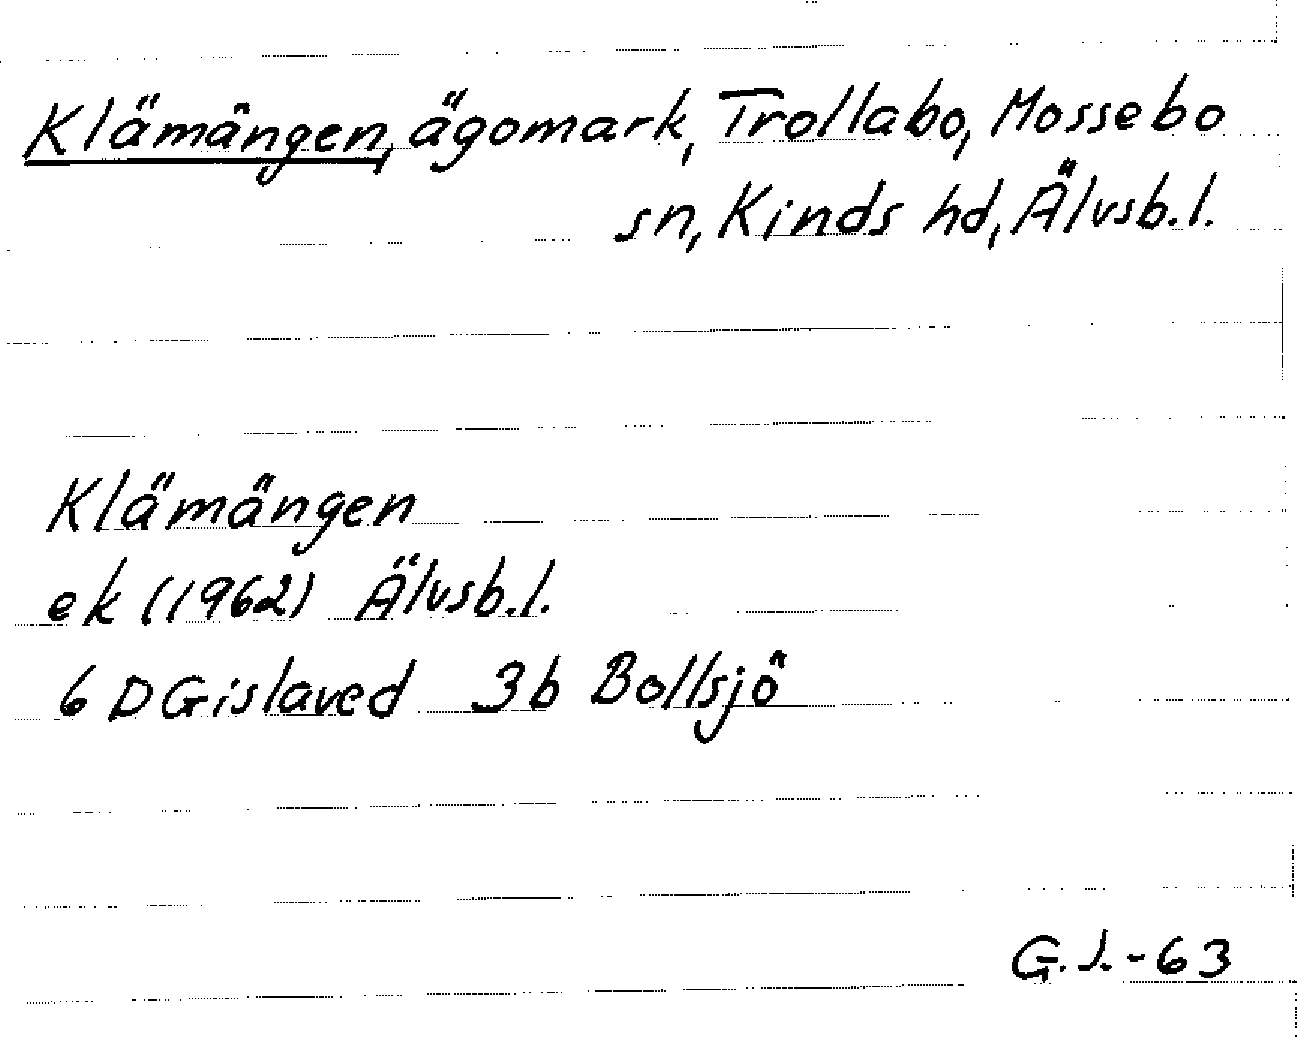 Klämängen, ägomark, Trollabo, Mossebo
sn, Kinds hd, Älvsb. l.
Klämängen
ek (1962) Älvsb. l.
6 D Gislaved 3b Bollsjö
G. J. - 63